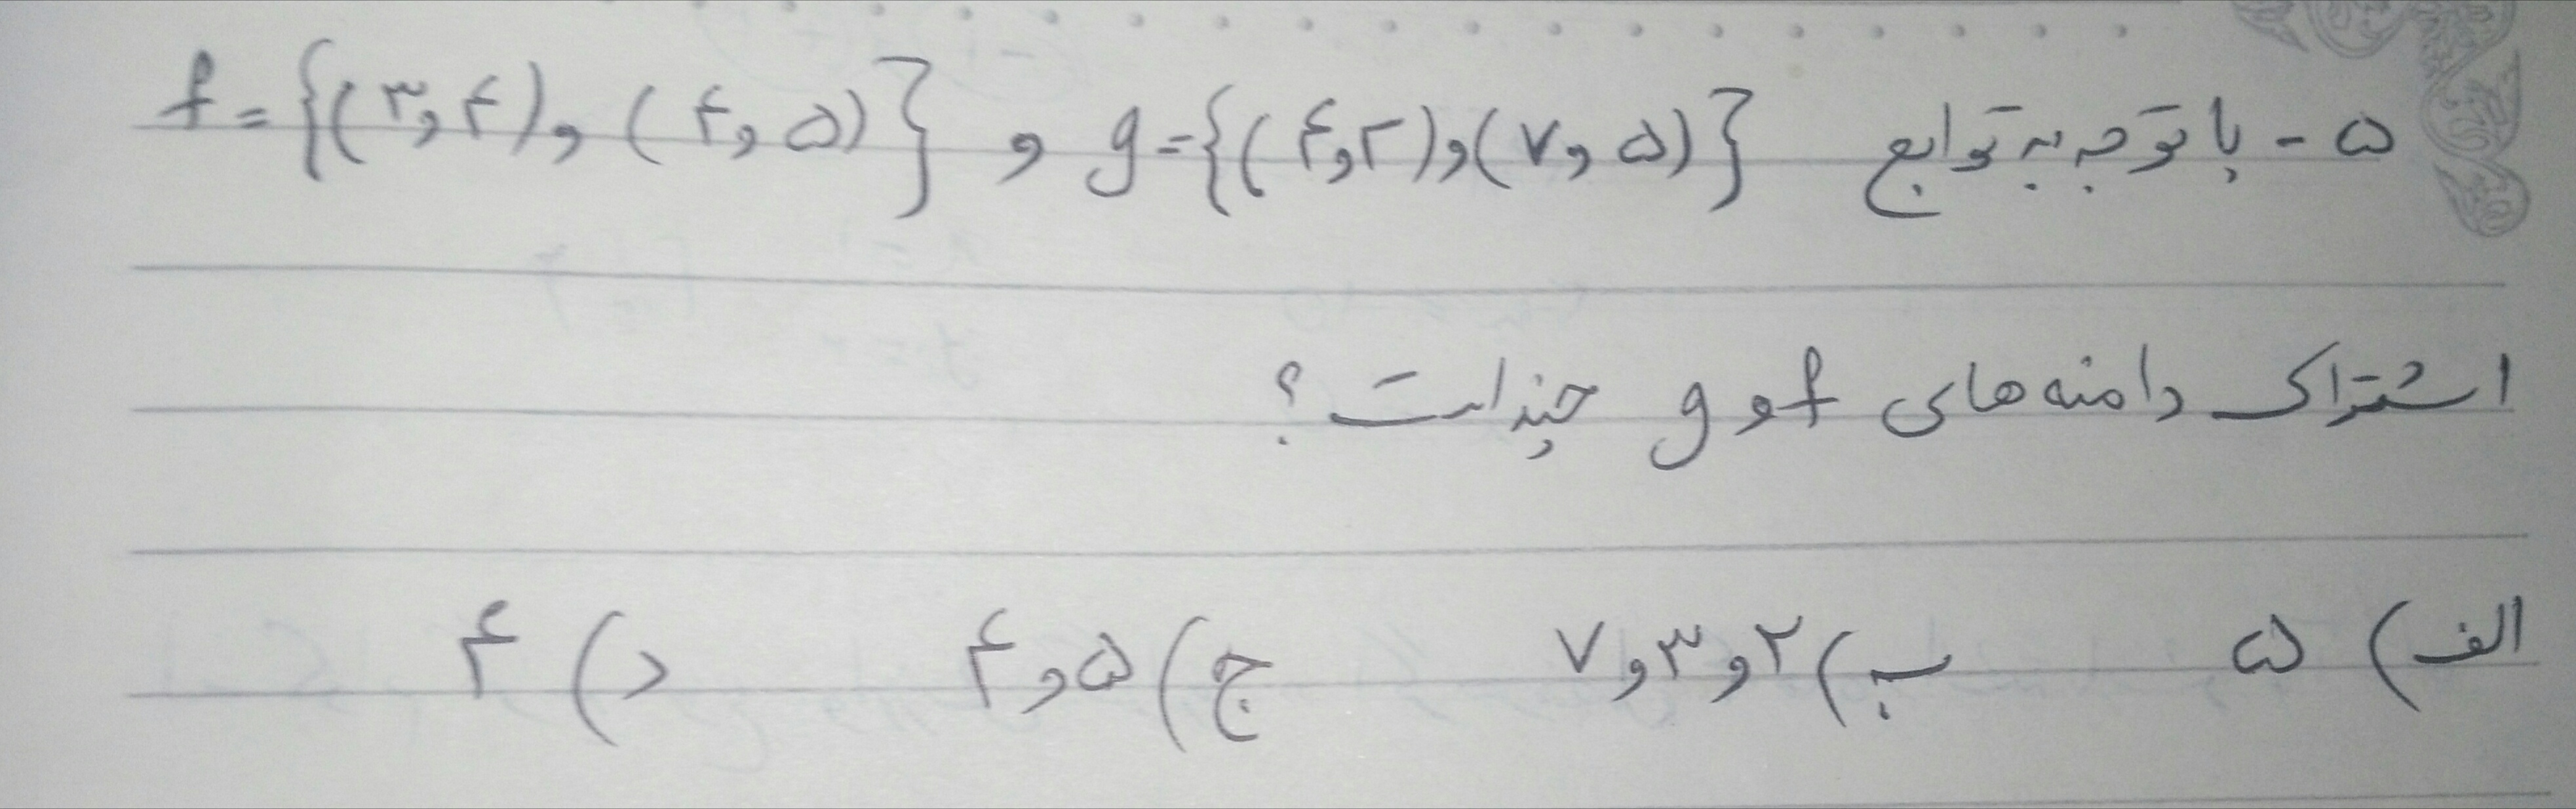 ۵ - با توجه به توابع f = {(۳و۴)و(۴و۵)} و g = {(۴و۲)و(۷و۵)}
اشتراک دامنه های f و g چند است؟
الف) ۵ ب) ۲و۳و۷ ج) ۵و۴ د) ۴